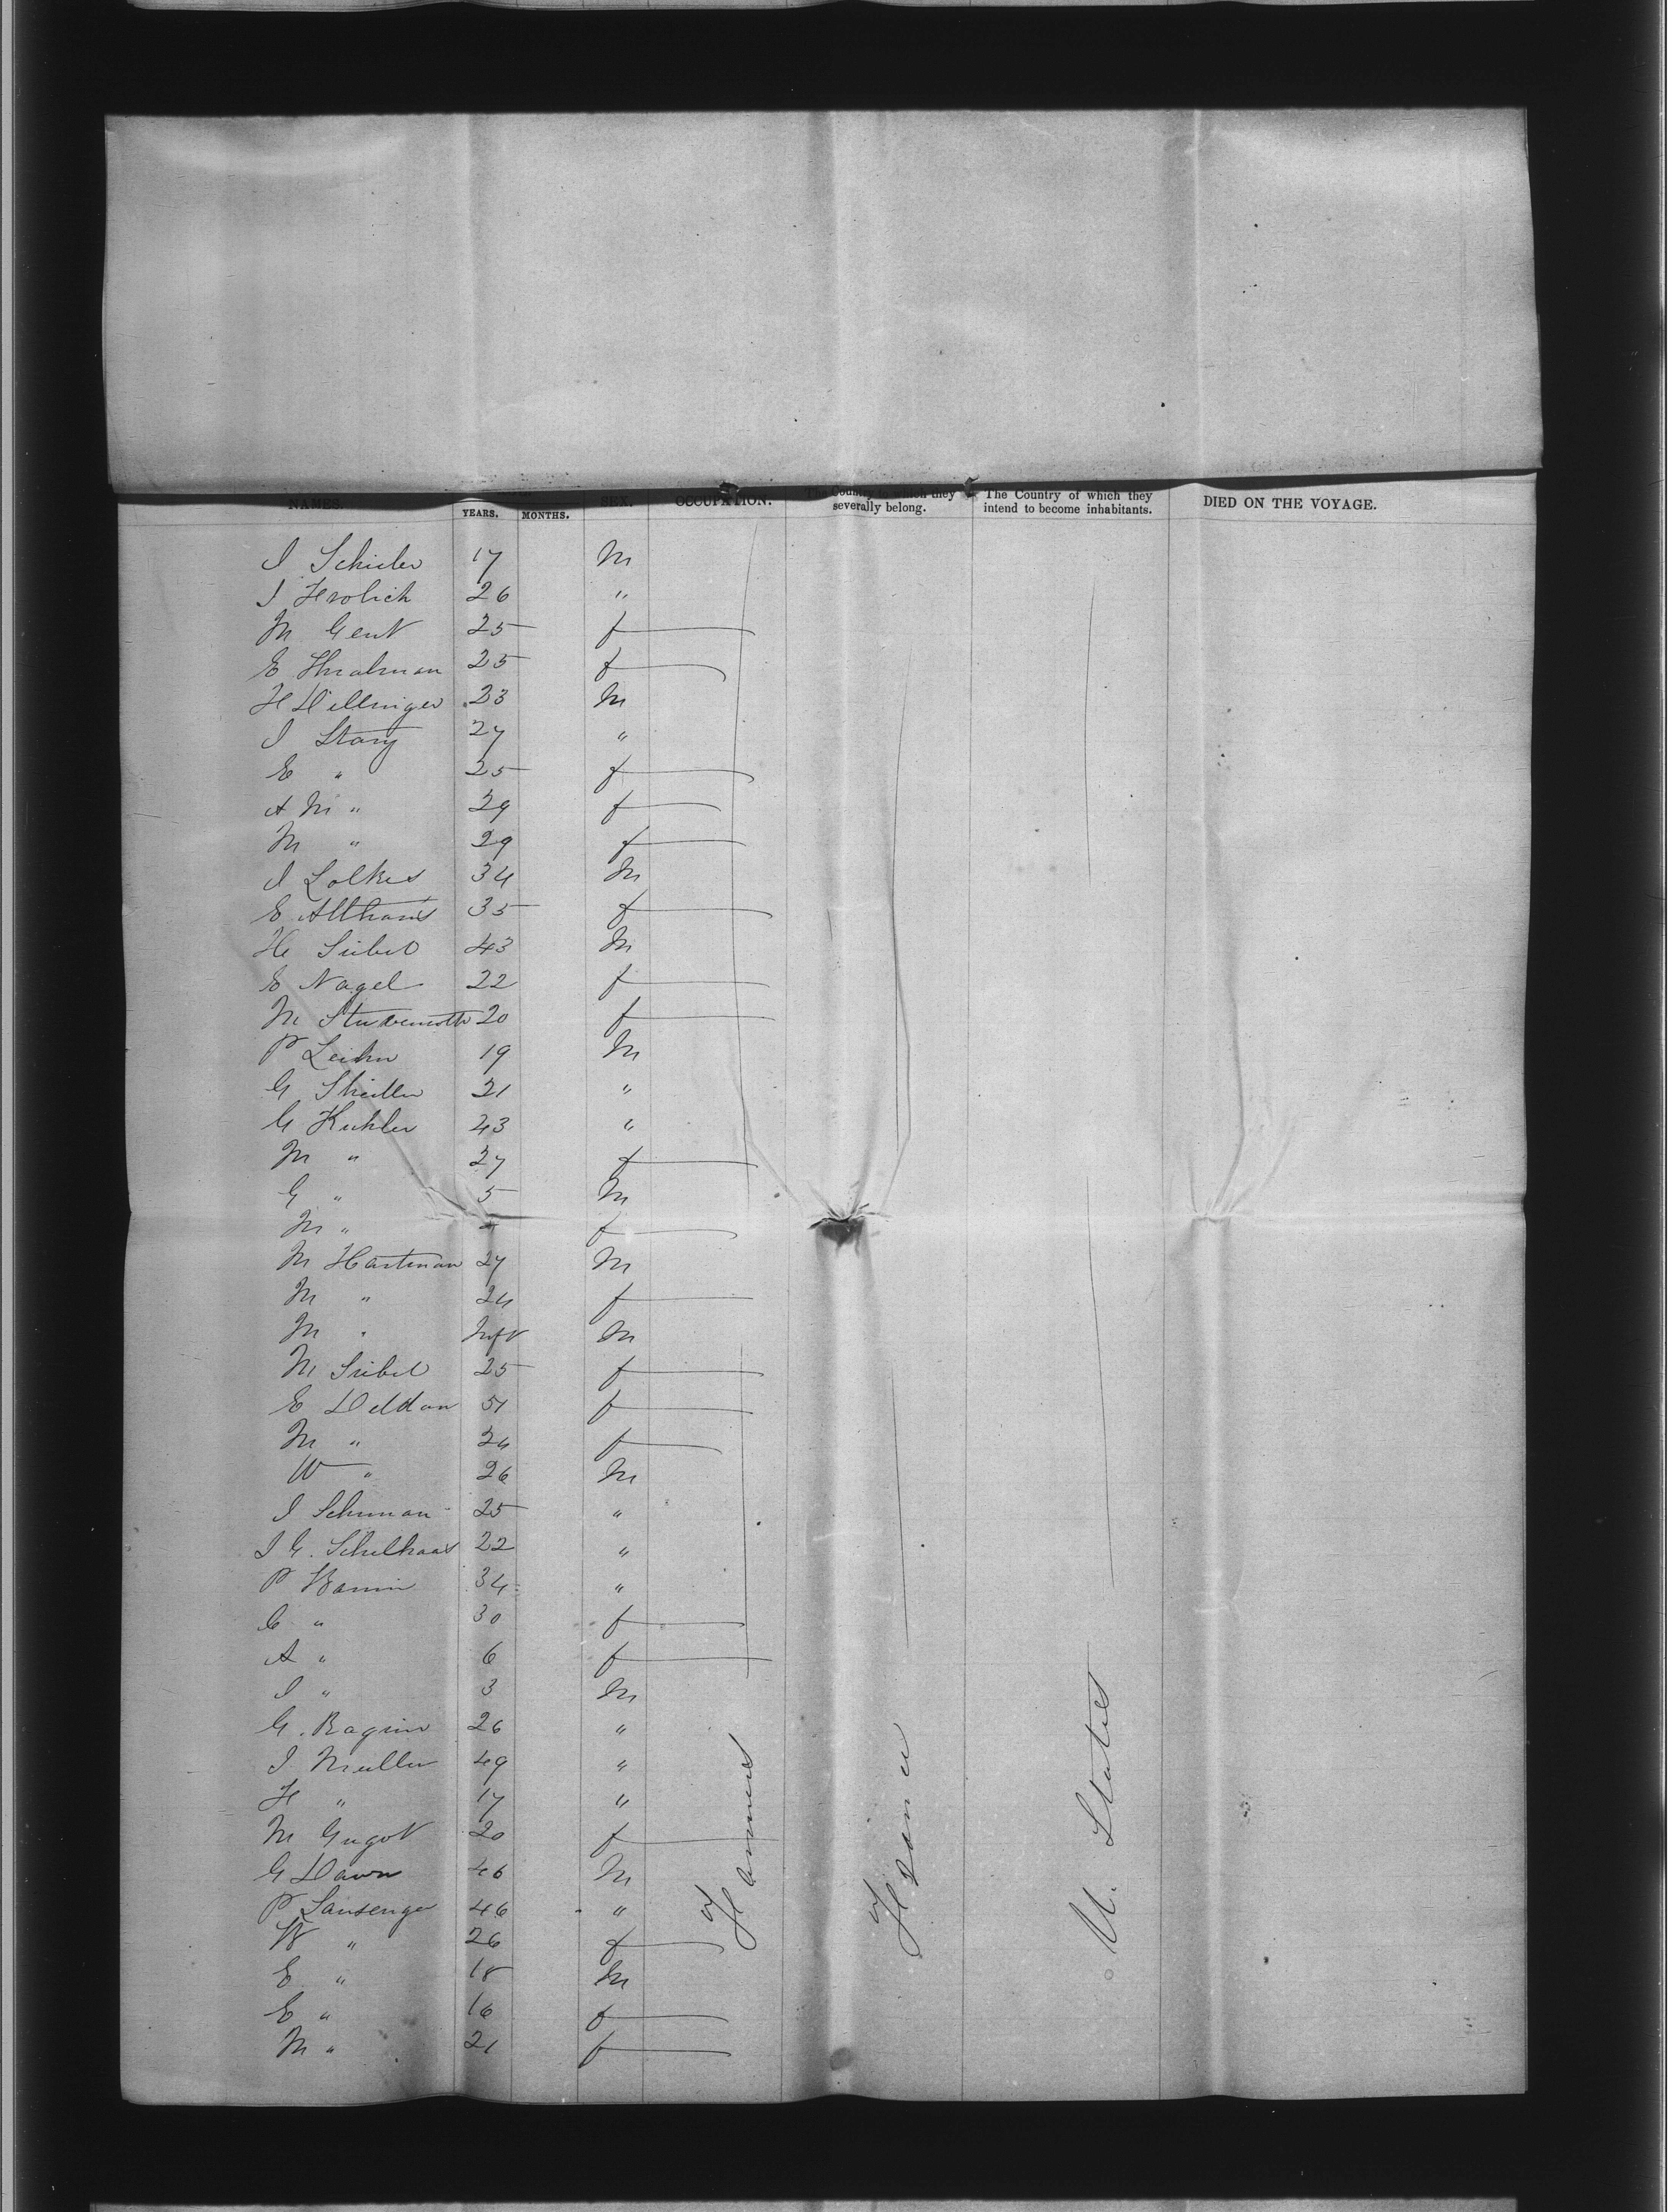 NAMES. YEARS. MONTHS. SEX. OCCUPATION. The Country to which they severally belong. The Country of which they intend to become inhabitants. DIED ON THE VOYAGE.
I Schieler 17 M
I Frolich 26 "
M Gent 25 f
E Thralman 25 f
H Dillinger 23 M
I Story 27 "
E " 25 f
A M " 29 f
M " 29 f
I Lolkes 34 M
E Althans 35 f
H Siebel 43 M
E Nagel 22 f
M 20 f
P Leihn 19 M
G 21 "
G Kuhler 43 "
M " 27 f
G " 5 M
M " f
M Hartman 27 M
M " 24 f
M " Inft M
M Siebel 25 f
E Deldon 51 f
M " 24 f
W " 26 M
I Schuman 25 "
I G. Schulhaas 22 "
P Bamin 34 "
C " 30 f
A " 6 f
I " 3 M
G. Ragim 26 "
I Muller 49 "
H " 17 "
M Gugot 20 f
G Dawn 46 M
P Lansenger 46 "
W " 26 f
E " 18 M
E " 16 f
M " 21 f
Farmers
France
U. States